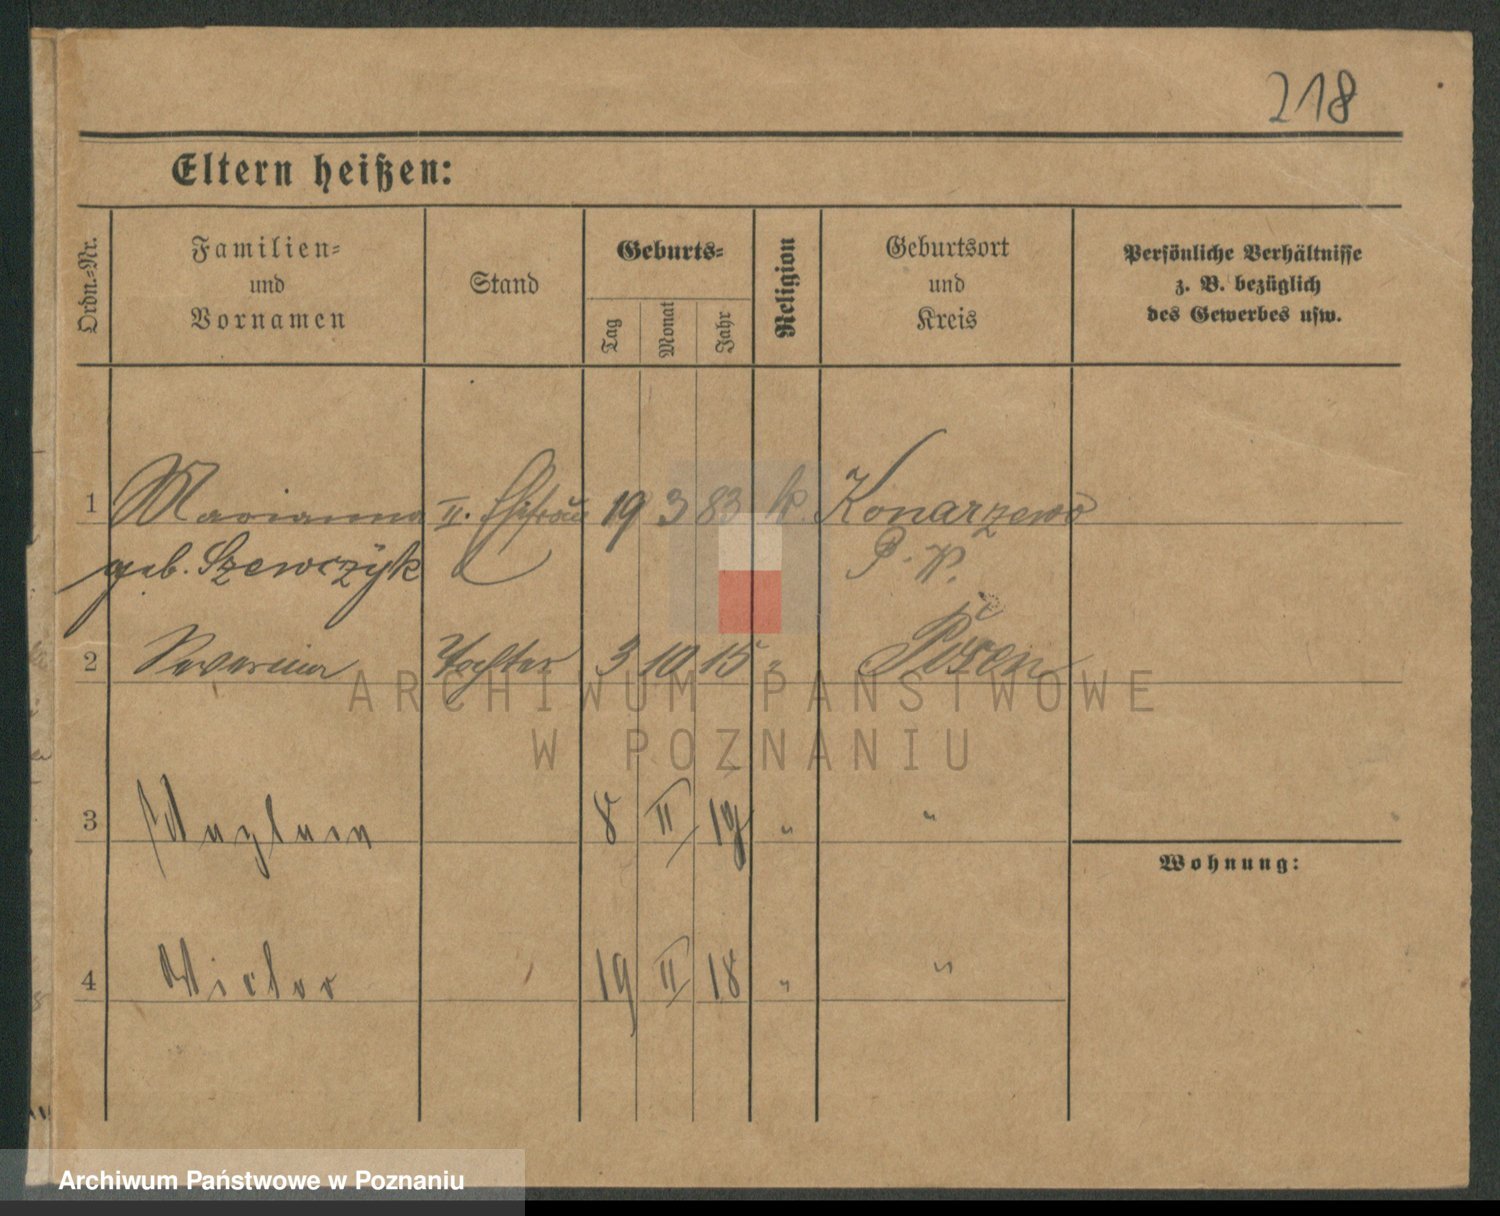 218
Eltern heißen:
Ordn.-Nr.
Familien-
und
Vornamen
Stand
Geburts-
Tag
Monat
Jahr
Religion
Geburtsort
und
Kreis
Persönliche Verhältnisse
z. B. bezüglich
des Gewerbes usw.
1 Marianna II. Ehefrau 19 3 83 k. Konarzewo
geb. Szewczÿk P. W.
2 Severina Tochter 3 10 15 " Posen
ARCHIWUM PAŃSTWOWE
W POZNANIU
3 8 II 19 " "
Wohnung:
4 Victor 19 II 18 " "
Archiwum Państwowe w Poznaniu